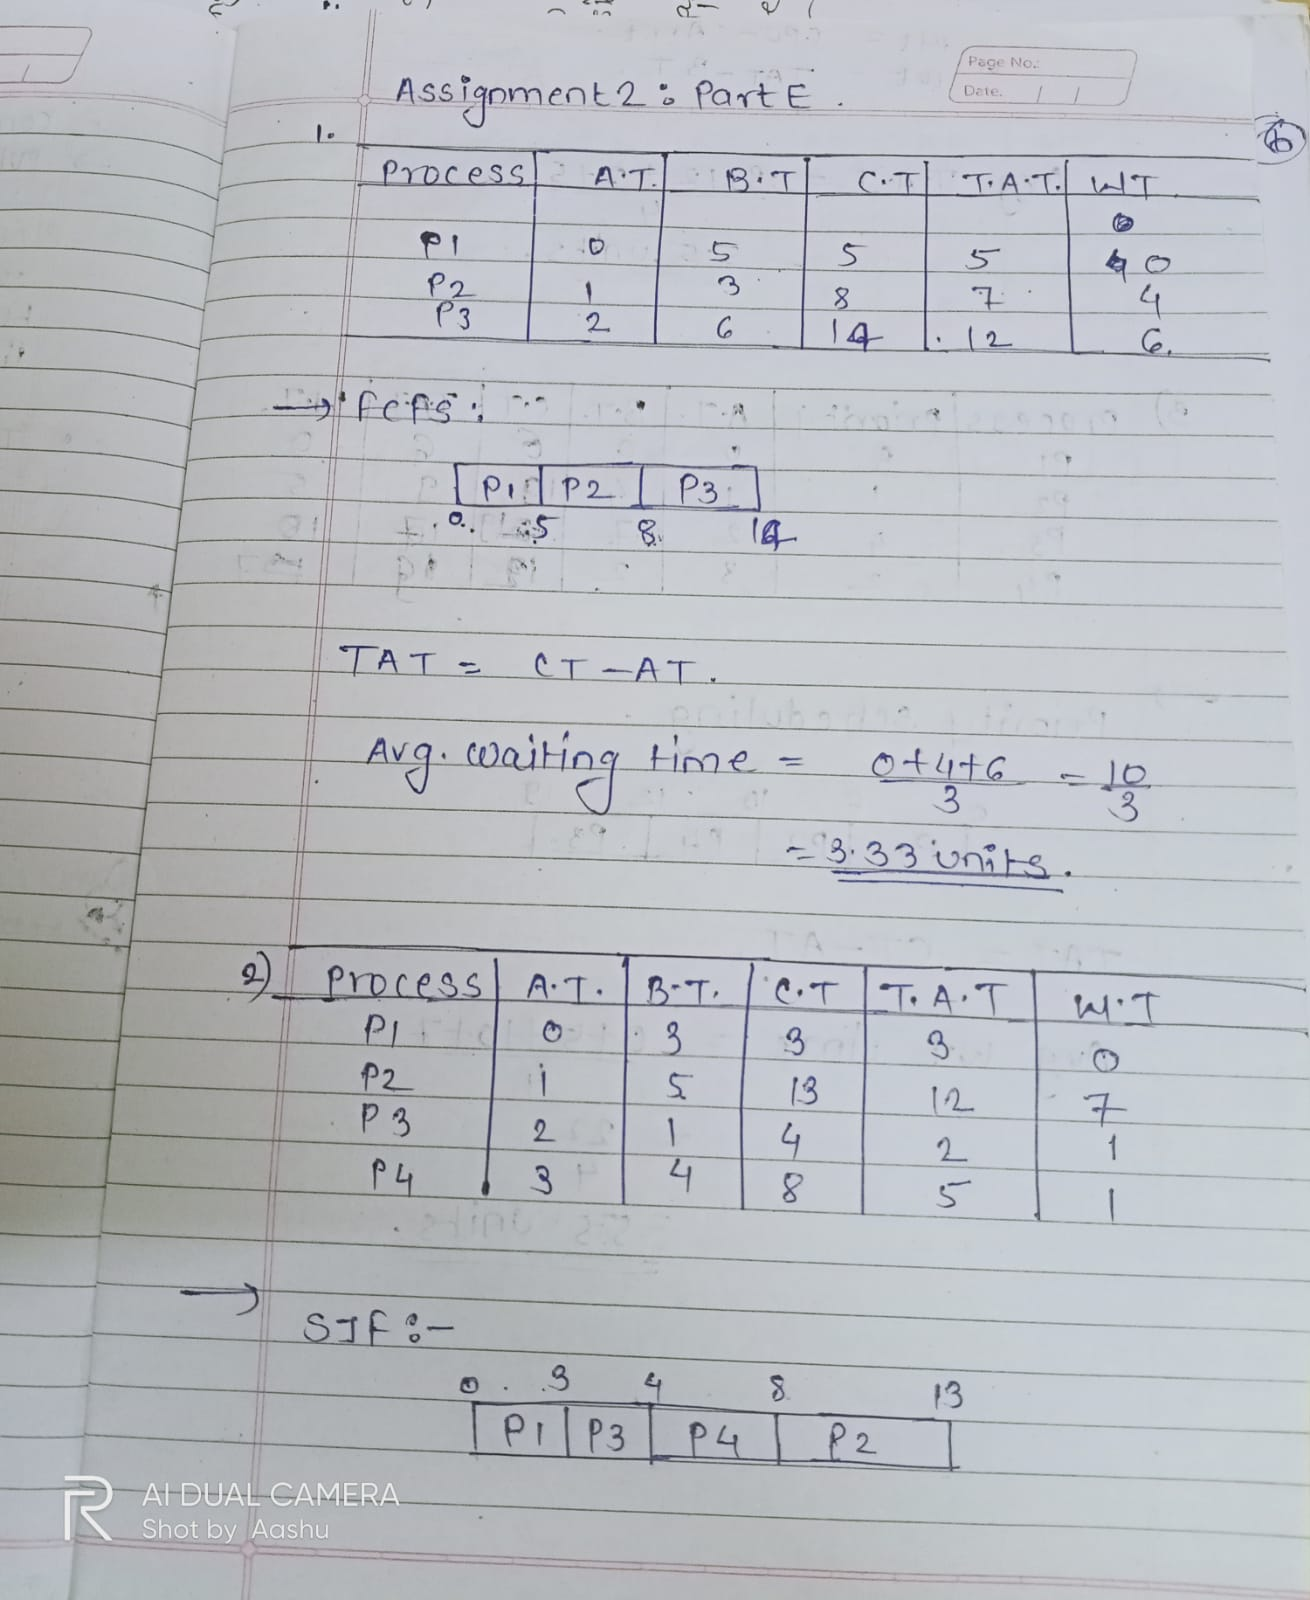 Page No.:
Date. / /
Assignment 2 : Part E .
6
1.
Process A.T. B.T C.T T.A.T. WT
0
P1 0 5 5 5 0
P2 1 3 8 7 4
P3 2 6 14 12 6.
→ FCFS :
P1 P2 P3
0 5 8 14
TAT = CT - AT.
Avg. waiting time = 0+4+6/3 = 10/3
= 3.33 units.
2) Process A.T. B.T. C.T T.A.T W.T
P1 0 3 3 3 0
P2 1 5 13 12 7
P3 2 1 4 2 1
P4 3 4 8 5 1
→
SJF :-
0 3 4 8 13
P1 P3 P4 P2
AI DUAL CAMERA
Shot by Aashu